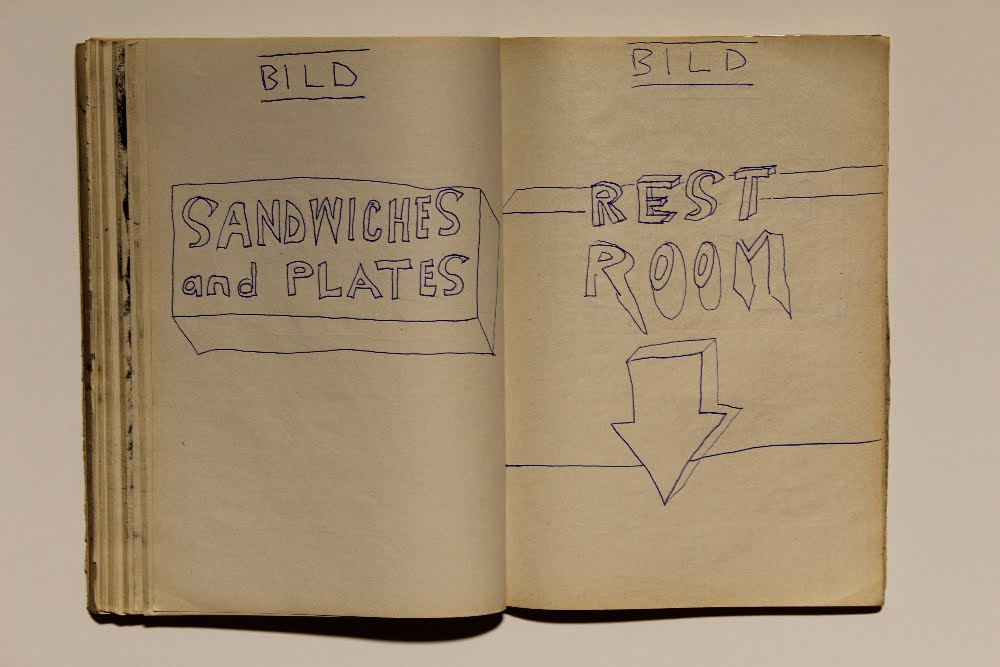 BILD
SANDWICHES
and PLATES
BILD
REST
ROOM